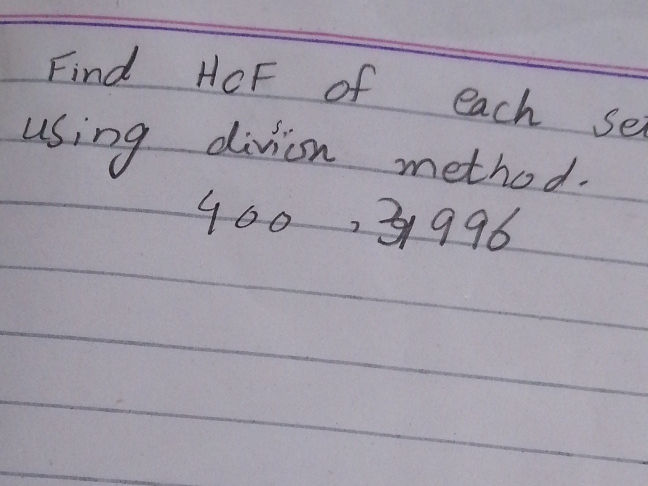 Find HCF of each
using division method.
400 , 996